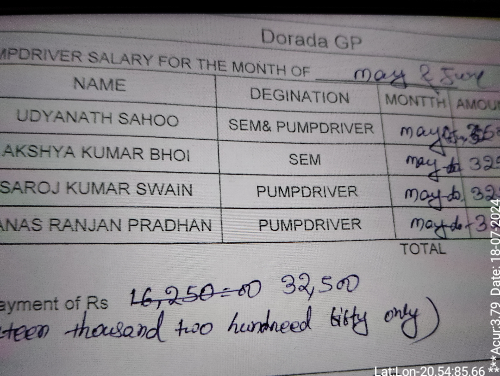 Dorada GP
MPDRIVER SALARY FOR THE MONTH OF may & June
NAME DEGINATION MONTTH AMOU
UDYANATH SAHOO SEM& PUMPDRIVER may
AKSHYA KUMAR BHOI SEM may to 325
SAROJ KUMAR SWAIN PUMPDRIVER may to 32
ANAS RANJAN PRADHAN PUMPDRIVER may to 3
TOTAL
ayment of Rs 16,250=00 32,500
teen thousand two hundreed fifty only)
Lat:Lon-20.54:85.66
***Acur:3.79 Date: 18-07-2024